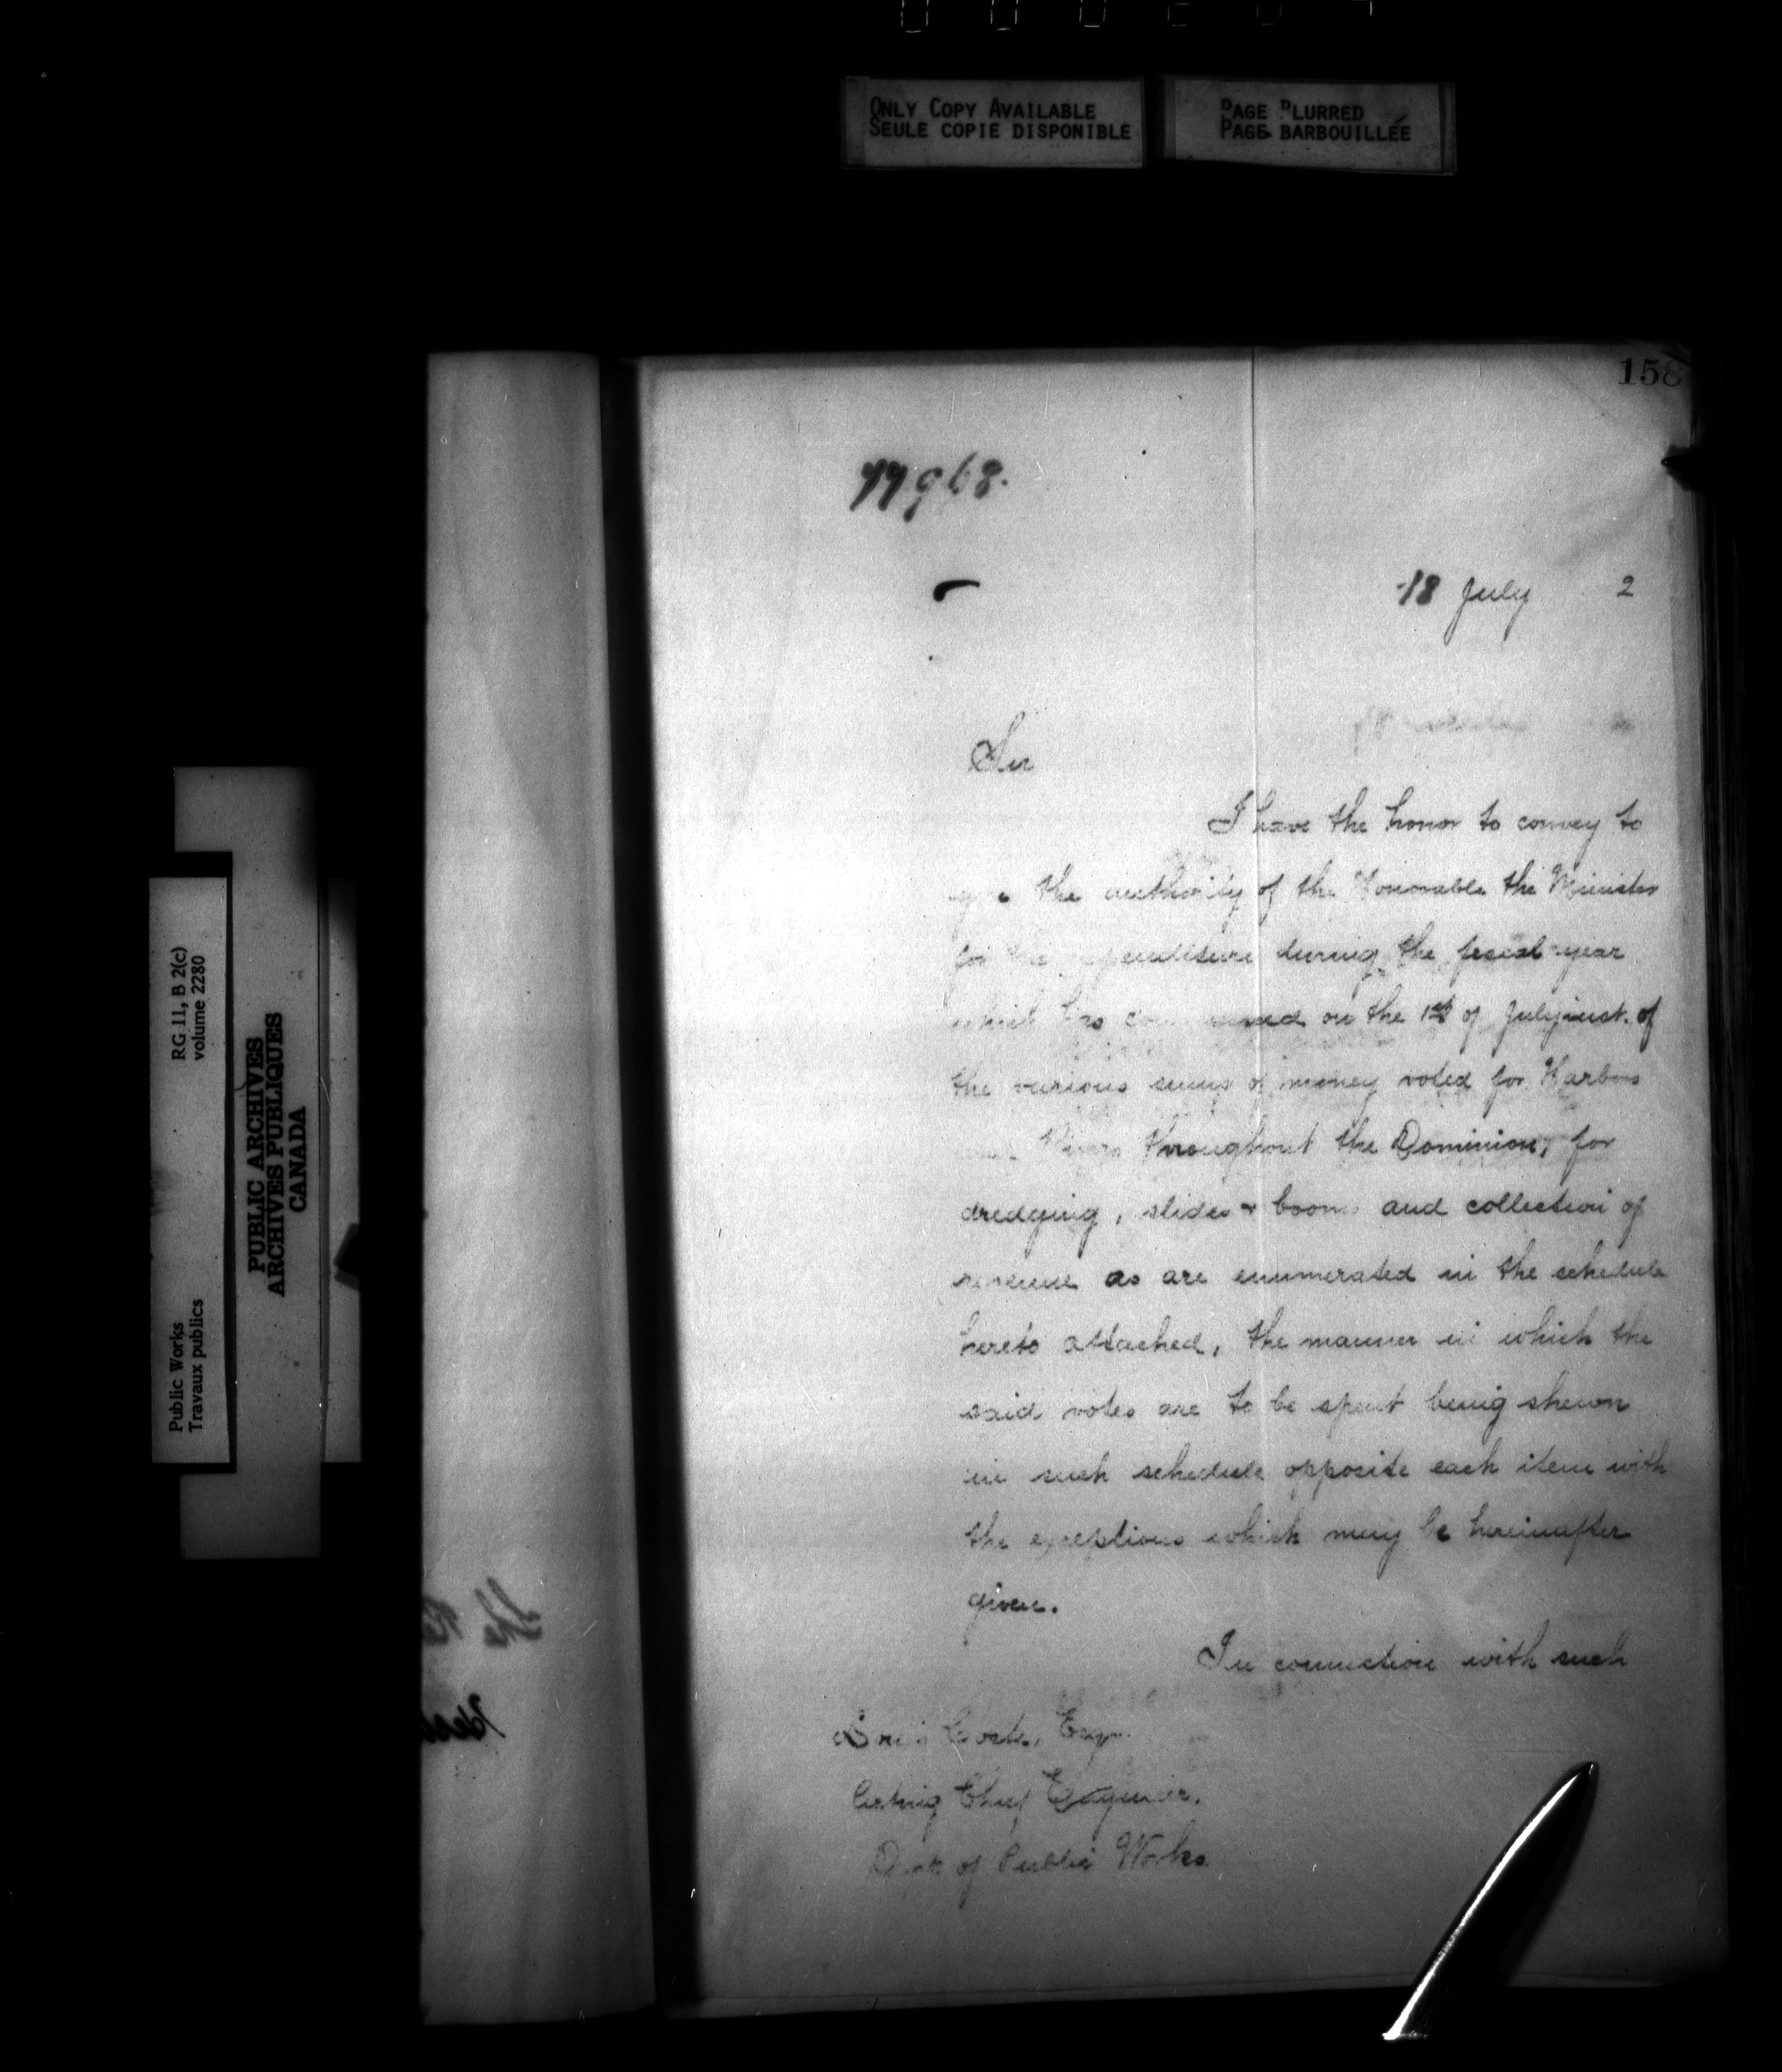 ONLY COPY AVAILABLE
SEULE COPIE DISPONIBLE
PAGE BLURRED
PAGE BARBOUILLÉE
158
18 July 2
Sir
I have the honor to convey to
the authority of the Honorable the Minister
for the expenditure during the fiscal year
which has commenced on the 1st of July inst. of
the various sums of money voted for Harbors
Rivers throughout the Dominion, for
dredging, slides & booms and collection of
revenue as are enumerated in the schedule
hereto attached, the manner in which the
said votes are to be spent being shewn
in such schedule opposite each item with
the exceptions which may be hereinafter
given.
In connection with such
Louis Coste, Esqr.
Acting Chief Engineer.
Dept of Public Works.
RG 11, B 2(c)
volume 2280
Public Works
Travaux publics
PUBLIC ARCHIVES
ARCHIVES PUBLIQUES
CANADA